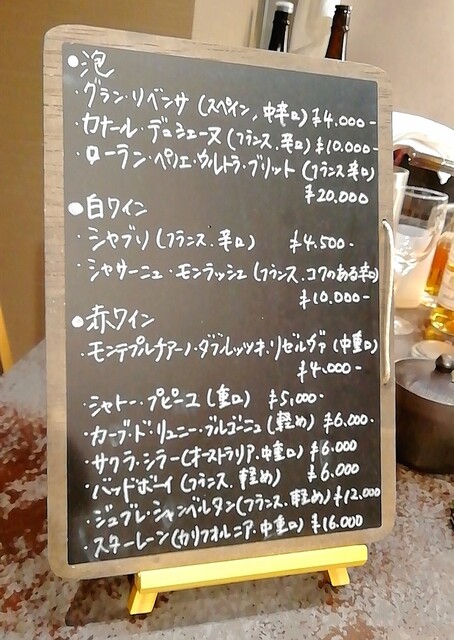 ●泡
・グラン・リベンサ(スペイン,中辛口) ¥4.000-
・カナール・デュシェーヌ(フランス.辛口) ¥10.000-
・ローラン・ペリエ・ウルトラ・ブリット(フランス 辛口)
¥20.000
●白ワイン
・シャブリ(フランス.辛口) ¥4.500-
・シャサーニュ・モンラッシュ(フランス.コクのある辛口)
¥10.000-
●赤ワイン
・モンテプルチアーノ・ダブルッツオ・リゼルヴァ(中重口)
¥4.000-
・シャトー・プピーユ(重口) ¥5,000-
・カーブ・ド・リュニー・ブルゴーニュ(軽め) ¥6.000-
・サクラ・シラー(オーストラリア.中重口) ¥6.000
・バッドボーイ(フランス.軽め) ¥6.000
・ジュブレ・シャンベルタン(フランス.軽め) ¥12,000
・スターレーン(カリフォルニア.中重口) ¥16.000